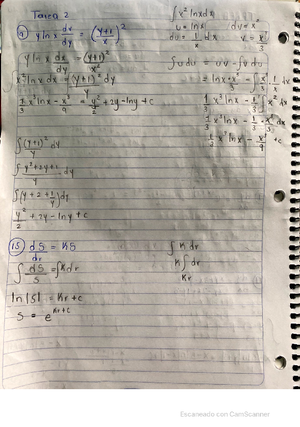 Tarea 2
9) y ln x dx/dy = ((y+1)/x)²
y ln x dx/dy = (y+1)²/x²
x² ln x dx = (y+1)²/y dy
1/3 x³ ln x - x³/9 = y²/2 + 2y - ln y + c
∫ (y+1)²/y dy
∫ y²+2y+1/y dy
∫ (y + 2 + 1/y) dy
y²/2 + 2y - ln y + c
∫ x² ln x dx
u = ln x dv = x²
du = 1/x dx v = x³/3
∫ u du = uv - ∫ v du
= ln x · x³/3 - ∫ x³/3 · 1/x dx
1/3 x³ ln x - 1/3 ∫ x³ · 1/x dx
1/3 x³ ln x - 1/3 · x³/3 dx
1/3 x³ ln x - x³/9 + c
15) dS/dr = KS
∫ dS/S = ∫ K dr
ln |S| = Kr + c
S = e^(Kr+c)
∫ K dr
K ∫ dr
Kr
Escaneado con CamScanner